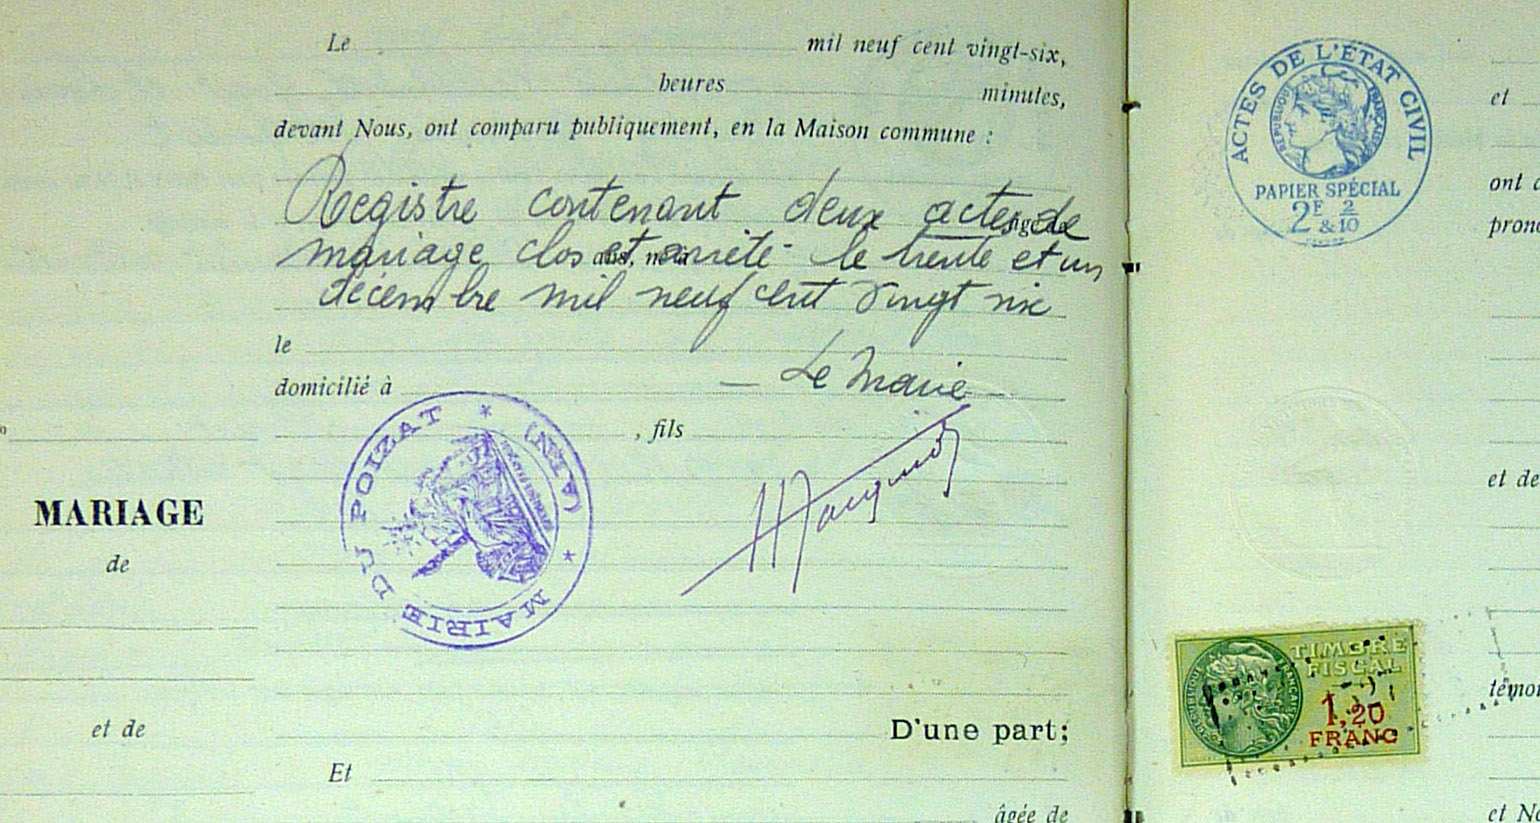 Le mil neuf cent vingt-six,
heures minutes,
devant Nous, ont comparu publiquement, en la Maison commune :
Registre contenant deux actes de
âgé de
mariage clos et arrêté le trente et un
ans, né à
décembre mil neuf cent vingt six
le
domicilié à
Le Maire
, fils
MAIRIE DU POIZAT * (AIN) *
MARIAGE
de
et de
D'une part;
Et
âgée de
ACTES DE L'ÉTAT CIVIL
RÉPUBLIQUE FRANÇAISE
PAPIER SPÉCIAL
2F 2
&10
TIMBRE
FISCAL
1,20
FRANC
et
ont
et de
et